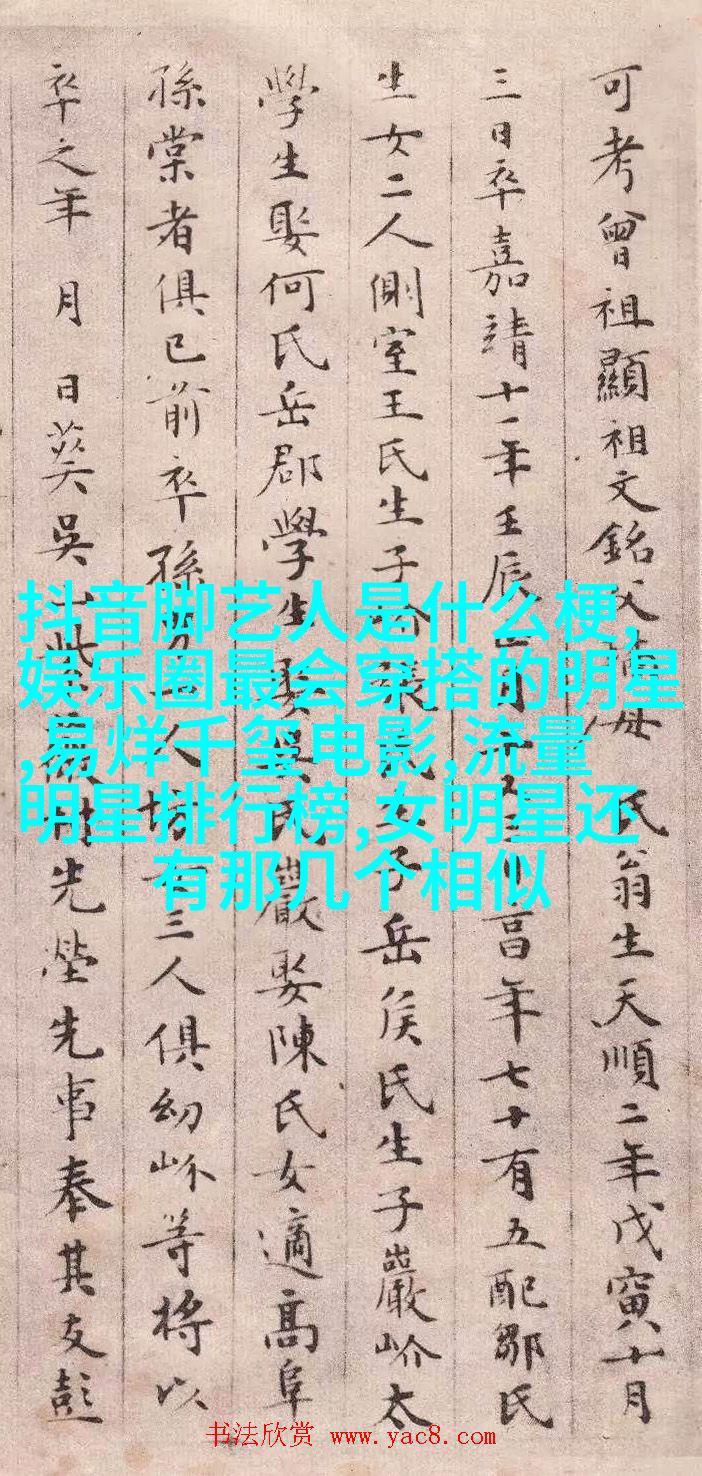 可考曾祖顯祖文銘父 母 氏翁生天順二年戊寅十月
三日卒嘉靖十一年壬辰 月 昌年七十有五配鄒氏
生女二人側室王氏生子 張氏 子岳侯氏生子巖岕太
學生娶何氏岳郡學生娶吳氏巖娶陳氏女適高阜
孫棠者俱已前卒孫 人 三人俱幼岕等將以
卒之年 月 日葬吳 先塋先事奉其友彭
抖音脚艺人是什么梗,
娱乐圈最会穿搭的明星
,易烊千玺电影,流量
明星排行榜,女明星还
有那几个相似
书法欣赏 www.yac8.com